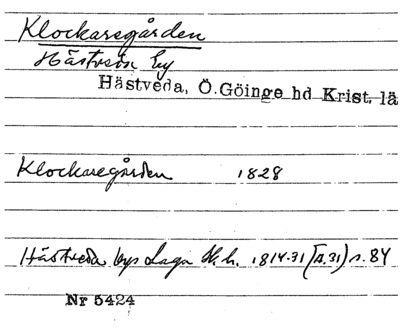 Klockaregården
Hästveda by
Hästveda, Ö.Göinge hd Krist. lä
Klockaregården 1828
Hästveda bys Laga Sk.h. 1814-31 (A.31) s. 84
Nr 5424